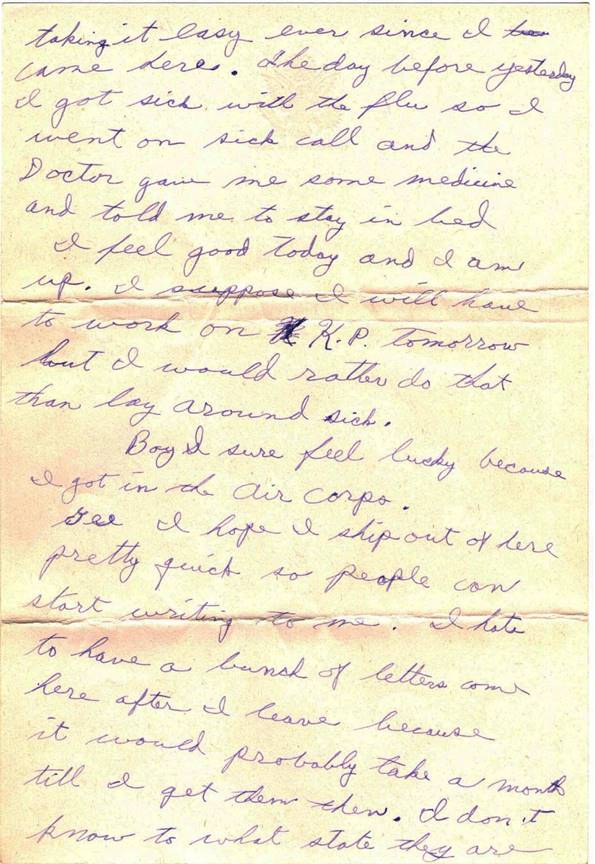 taking it easy ever since I
came here. The day before yesterday
I got sick with the flu so I
went on sick call and the
Doctor gave me some medicine
and told me to stay in bed
I feel good today and I am
up. I suppose I will have
to work on K.P. tomorrow
but I would rather do that
than lay around sick.
Boy I sure feel lucky because
I got in the air corps.
Gee I hope I ship out of here
pretty quick so people can
start writing to me. I hate
to have a bunch of letters come
here after I leave because
it would probably take a month
till I get them then. I don't
know to what state they are